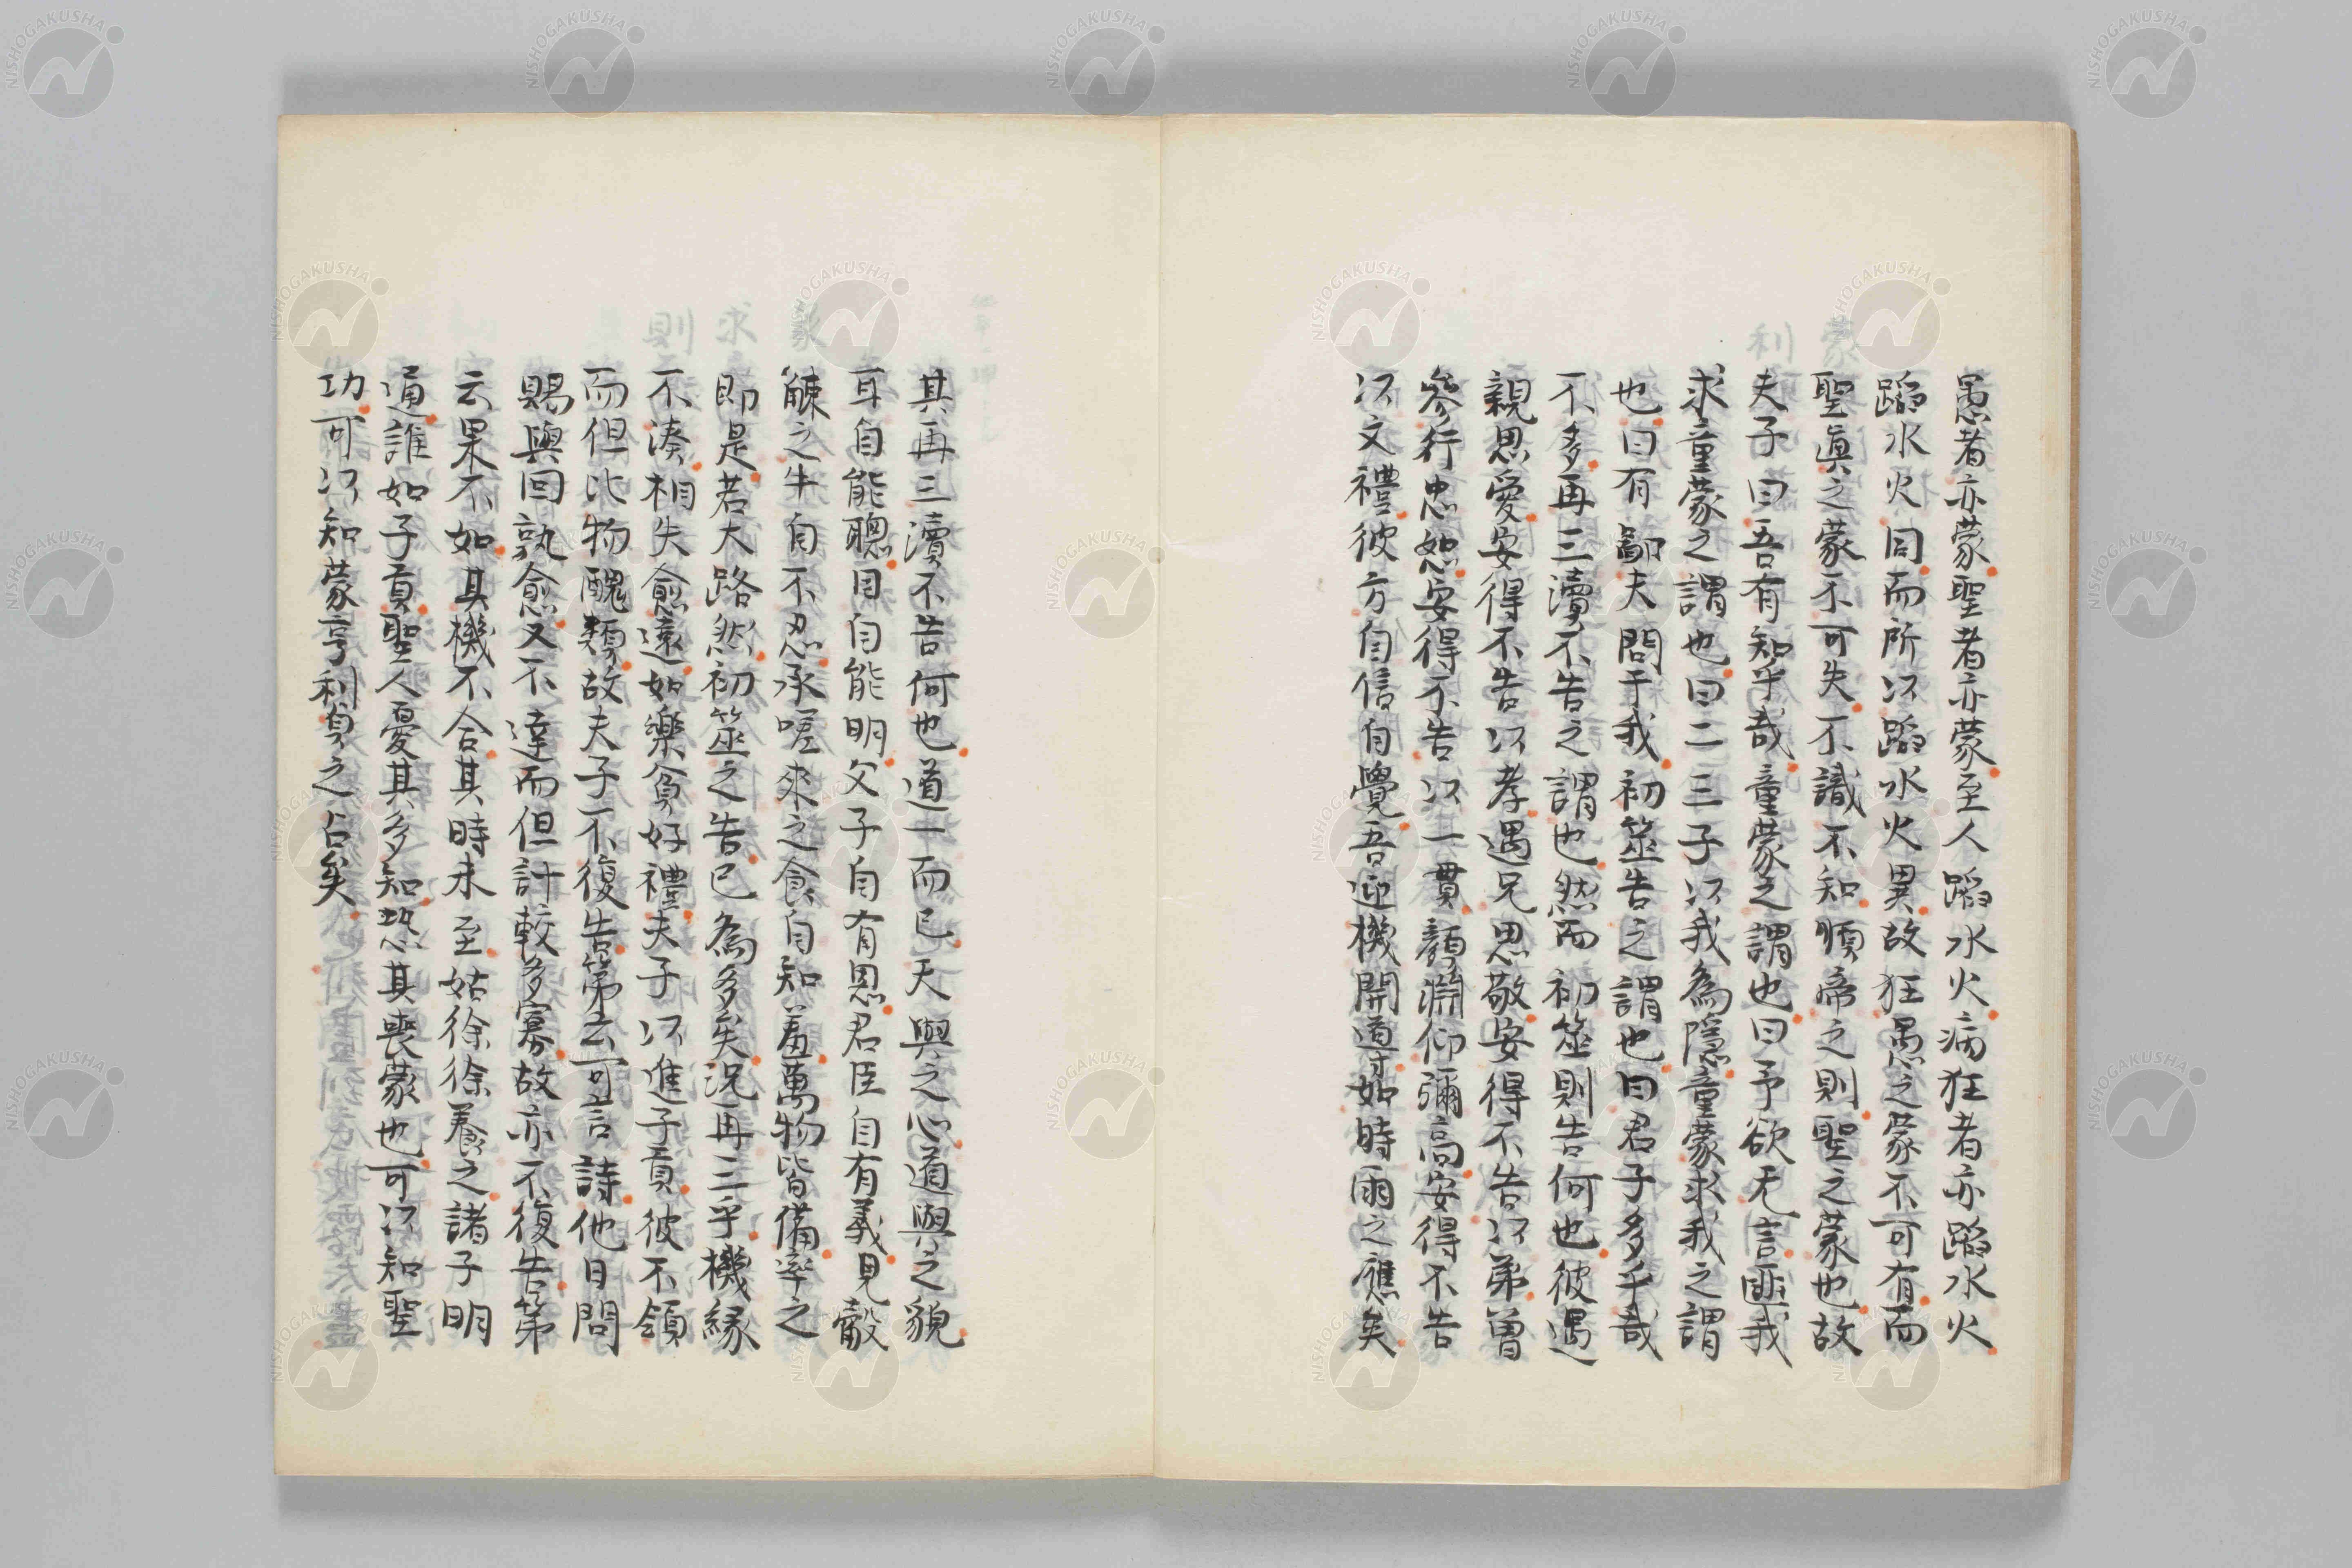 愚者亦蒙聖者亦蒙至人蹈水火病狂者亦蹈水火
蹈水火同而所以蹈水火異故狂愚之蒙不可有而
聖眞之蒙不可失不識不知順帝之則聖之蒙也故
夫子曰吾有知乎哉童蒙之謂也曰予欲无言匪我
求童蒙之謂也曰二三子以我為隱童蒙求我之謂
也曰有鄙夫問于我初筮告之謂也曰君子多乎哉
不多再三瀆不告之謂也然而初筮則告何也彼遇
親思愛安得不告以孝遇兄思敬安得不告以弟曾
參行忠恕安得不告以一貫顏淵仰彌高安得不告
以文禮彼方自信自覺吾迎機開導如時雨之應矣
其再三瀆不告何也道一而已天與之心道與之貌
耳自能聰目自能明父子自有恩君臣自有義見觳
觫之牛自不忍承嗟來之食自知羞萬物皆備率之
即是若大路然初筮之告已為多矣況再三乎機緣
不湊相失愈遠如樂貧好禮夫子以進子貢彼不領
而但比物醜類故夫子不復告第云可言詩他日問
賜與回孰愈又不達而但計較多寡故亦不復告第
云果不如其機不合其時未至姑徐徐養之諸子明
通誰如子貢聖人憂其多知恐其喪蒙也可以知聖
功可以知蒙亨利貞之占矣